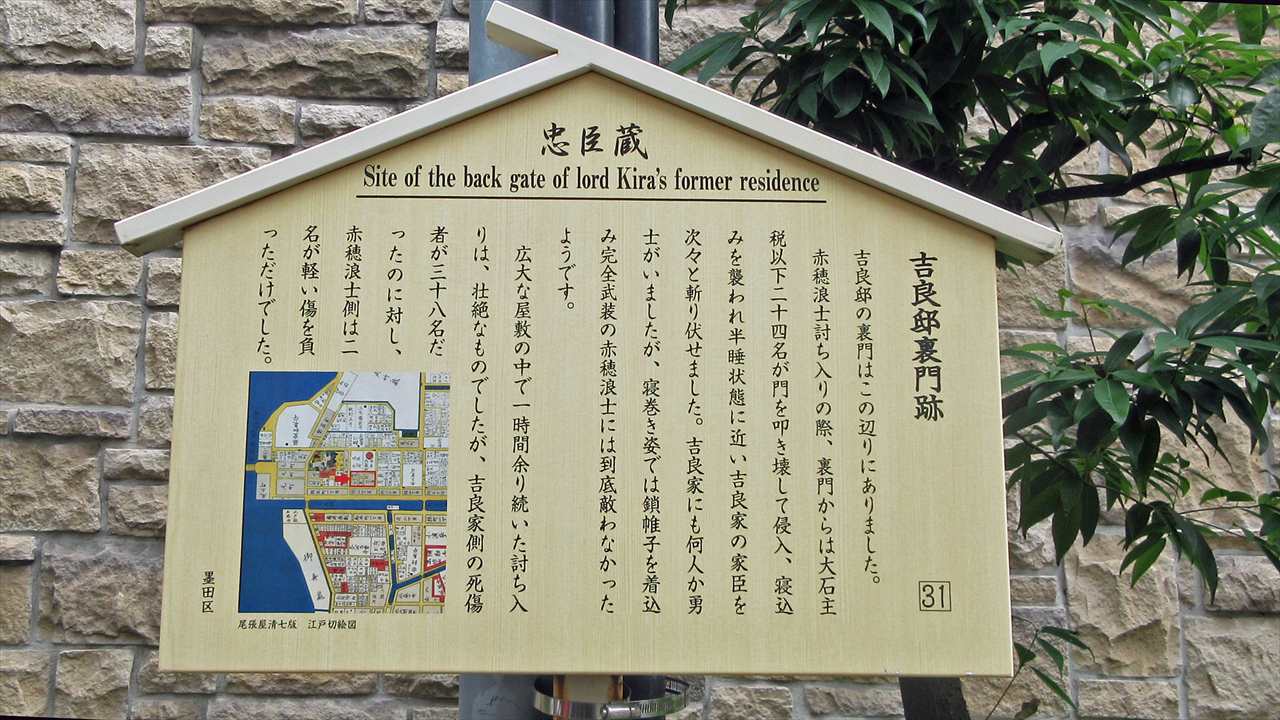 忠臣蔵
Site of the back gate of lord Kira's former residence
吉良邸裏門跡
吉良邸の裏門はこの辺りにありました。
赤穂浪士討ち入りの際、裏門からは大石主
税以下二十四名が門を叩き壊して侵入、寝込
みを襲われ半睡状態に近い吉良家の家臣を
次々と斬り伏せました。吉良家にも何人か勇
士がいましたが、寝巻き姿では鎖帷子を着込
み完全武装の赤穂浪士には到底敵わなかった
ようです。
広大な屋敷の中で一時間余り続いた討ち入
りは、壮絶なものでしたが、吉良家側の死傷
者が三十八名だ
ったのに対し、
赤穂浪士側は二
名が軽い傷を負
っただけでした。
31
尾張屋清七版 江戸切絵図
墨田区